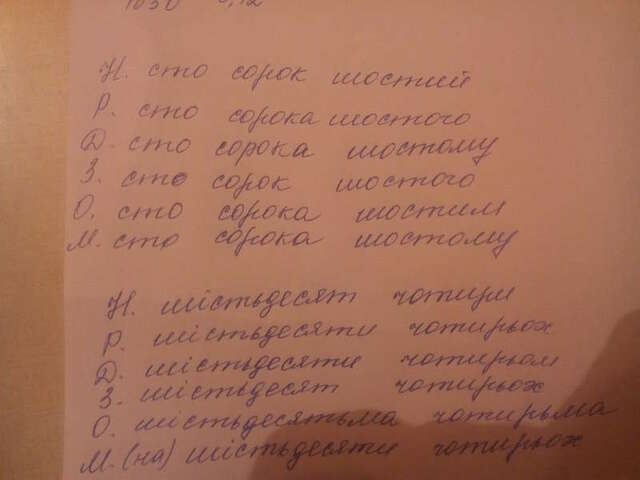 Н. сто сорок шостий
Р. сто сорока шостого
Д. сто сорока шостому
З. сто сорок шостого
О. сто сорока шостим
М. сто сорока шостому
Н. шістьдесят чотири
Р. шістьдесяти чотирьох
Д. шістьдесяти чотирьом
З. шістьдесят чотирьох
О. шістьдесятьма чотирьма
М. (на) шістьдесяти чотирьох